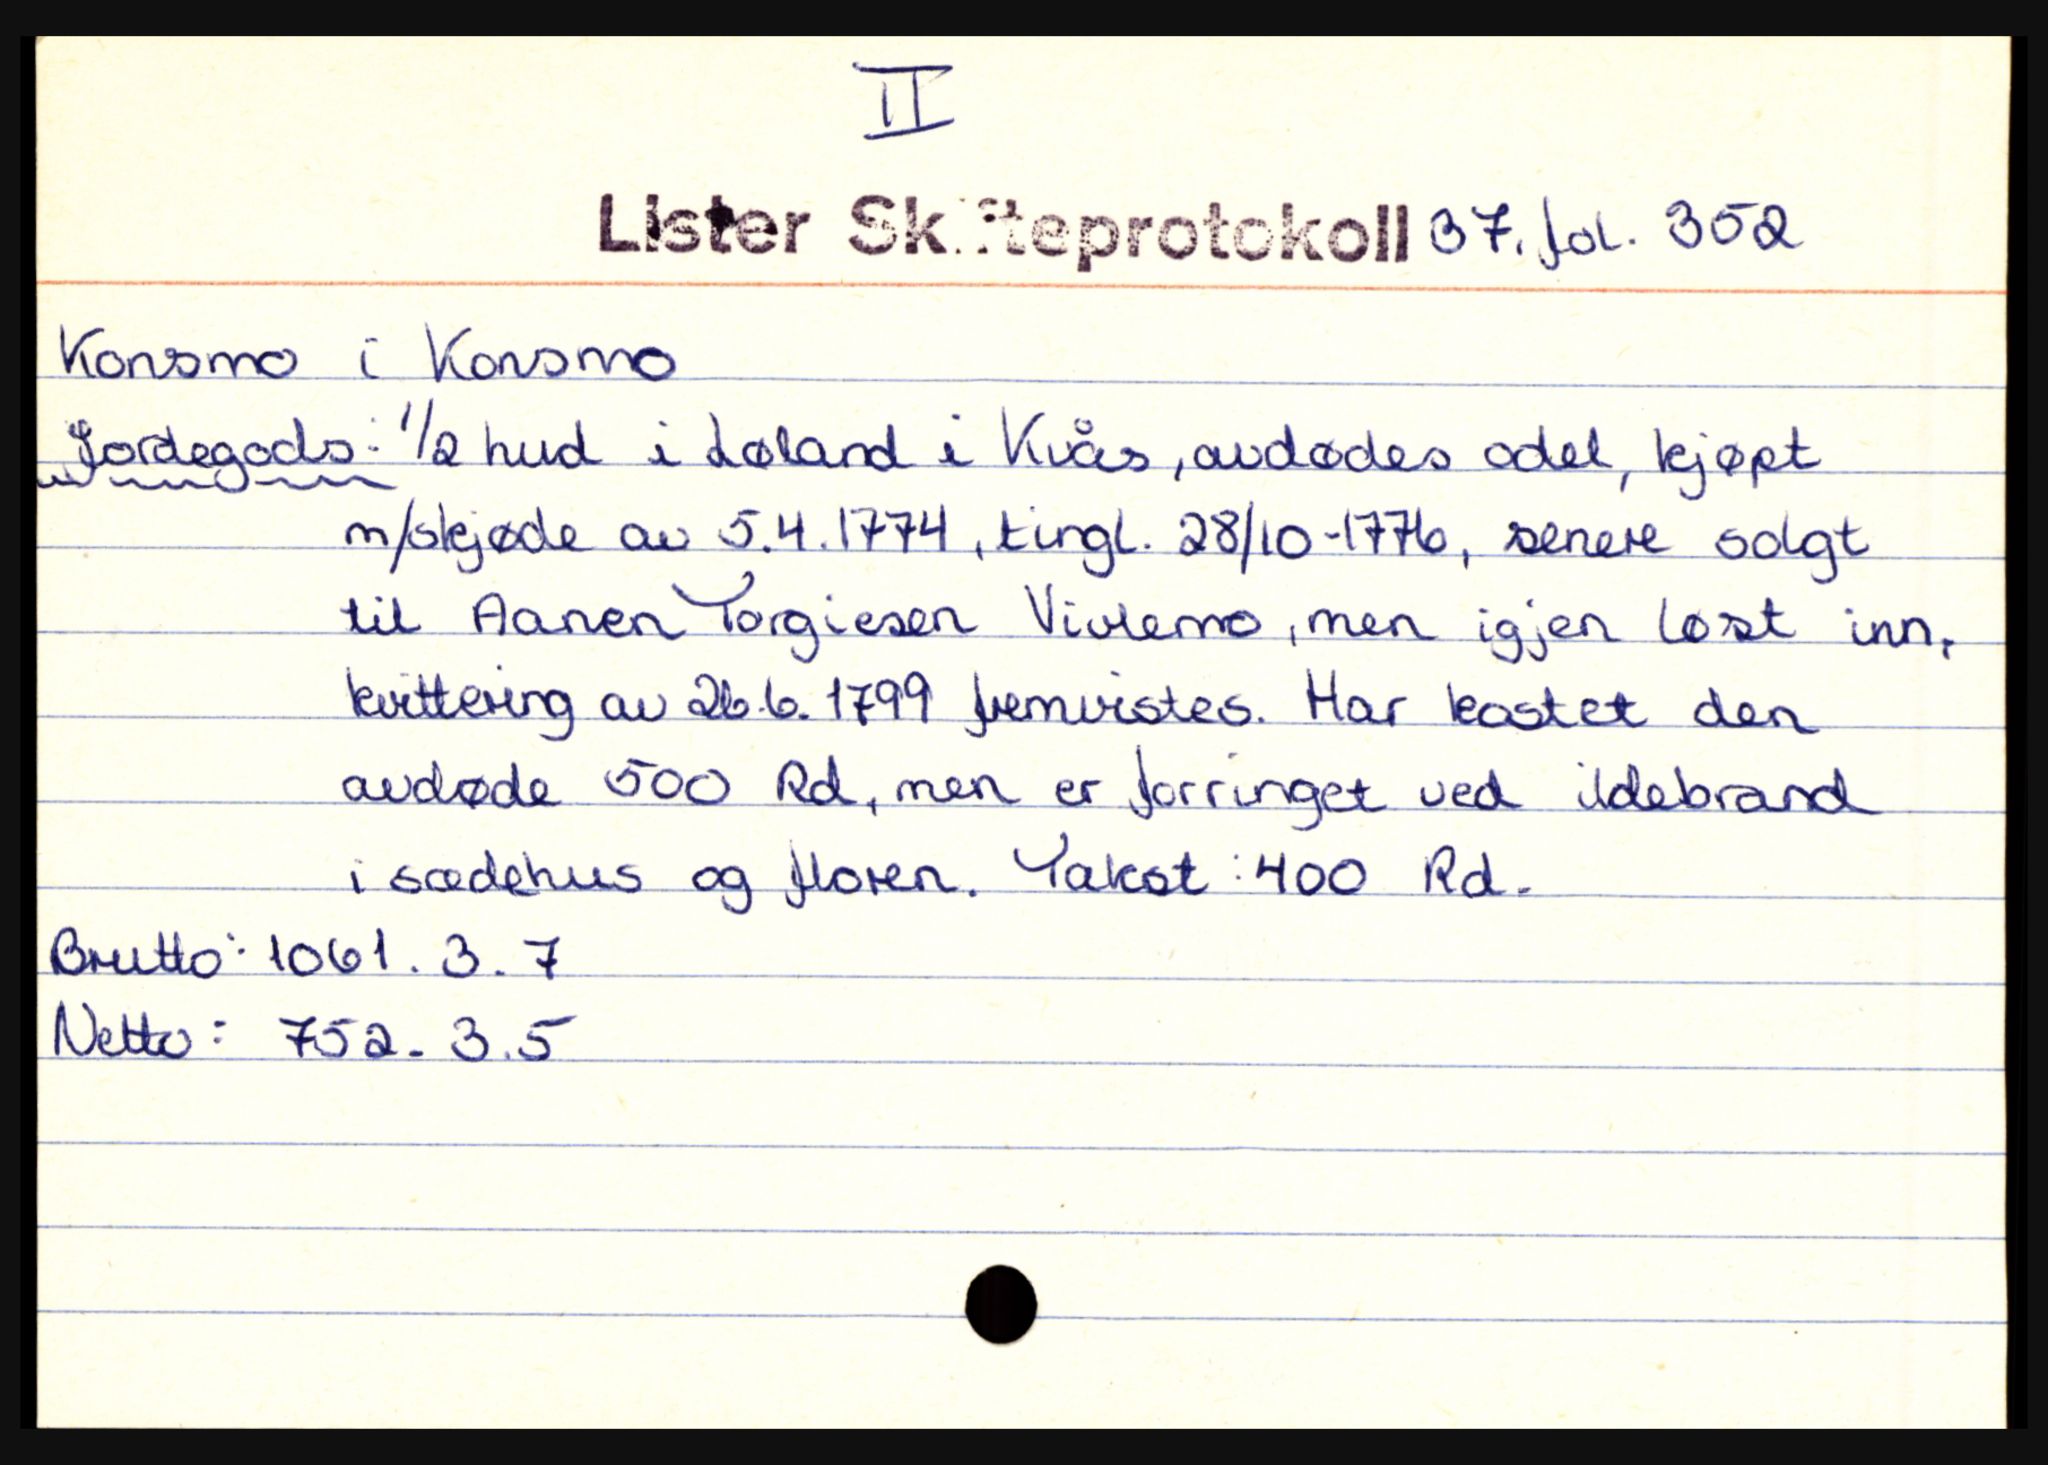 II
Lister Skifteprotokoll 37. fol. 352
Konsmo i Konsmo
Jordegods: 1/2 hud i Løland i Kvås, avdødes odel, kjøpt
m/skjøde av 5.4.1774, tingl. 28/10-1776, senere solgt
til Aanen Torgiesen Vivlemo, men igjen løst inn,
kvittering av 26.6.1799 fremvistes. Har kostet den
avdøde 500 Rd, men er forringet ved ildebrand
i sædehus og floren. Takst: 400 Rd.
Brutto: 1061. 3. 7
Netto: 752. 3. 5